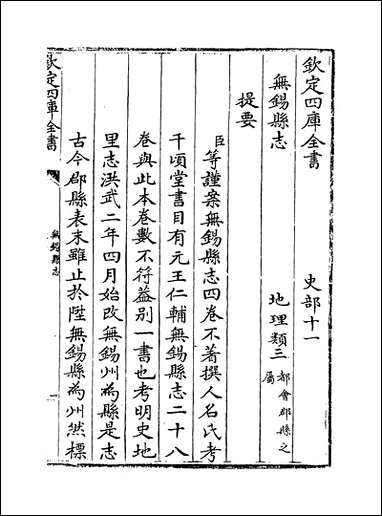 欽定四庫全書
史部十一
無錫縣志
地理類三
都會郡縣之
屬
提要
臣等謹案無錫縣志四卷不著撰人名氏考
千頃堂書目有元王仁輔無錫縣志二十八
卷與此本卷數不符益別一書也考明史地
里志洪武二年四月始改無錫州為縣是志
古今郡縣表末雖止於陞無錫縣為州然標
欽定四庫全書
無錫縣志
一